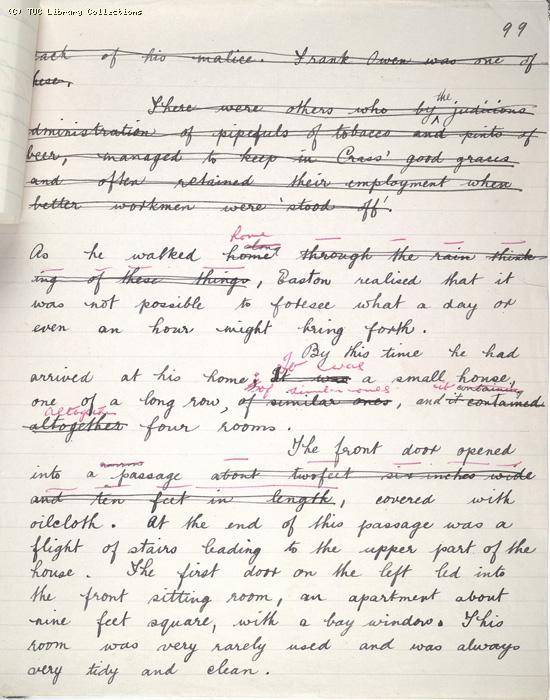 (C) TUC Library Collections
99
each of his malice. Frank Owen was one of
these.
There were others who by the judicious
administration of pipefuls of tobacco and pints of
beer, managed to keep in Crass' good graces
and often retained their employment when
better workmen were 'stood off'.
As he walked home along through the rain think-
ing of these things, Easton realised that it
was not possible to foresee what a day or
even an hour might bring forth.
By this time he had
arrived at his home; It was a small house,
it was
one of a long row, of similar ones, and it contained
of similar ones it containing
altogether four rooms.
Altogether
The front door opened
into a narrow passage about twofeet six inches wide
and ten feet in length, covered with
oilcloth. At the end of this passage was a
flight of stairs leading to the upper part of the
house. The first door on the left led into
the front sitting room, an apartment about
nine feet square, with a bay window. This
room was very rarely used and was always
very tidy and clean.